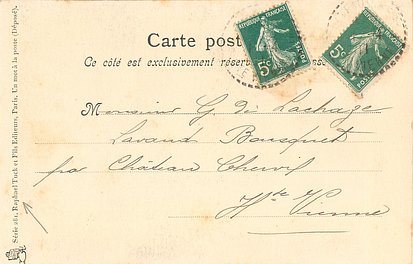 Carte post
Ce côté est exclusivement réserv
REPUBLIQUE FRANÇAISE
5c
POSTES
REPUBLIQUE FRANÇAISE
5c
Monsieur G. de
Lavaud Bousquet
par Château Chervix
Hte Vienne
Série 261, Raphael Tuck et Fils Editeurs, Paris, Un mot à la poste (Déposé).